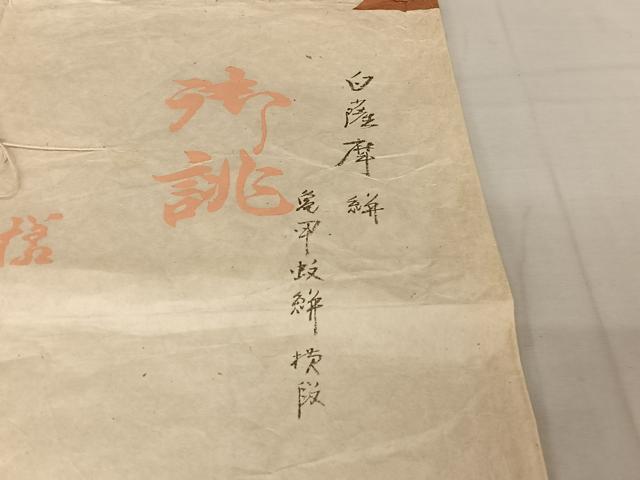 白薩摩 絣
亀甲蚊絣 横段
御誂
様